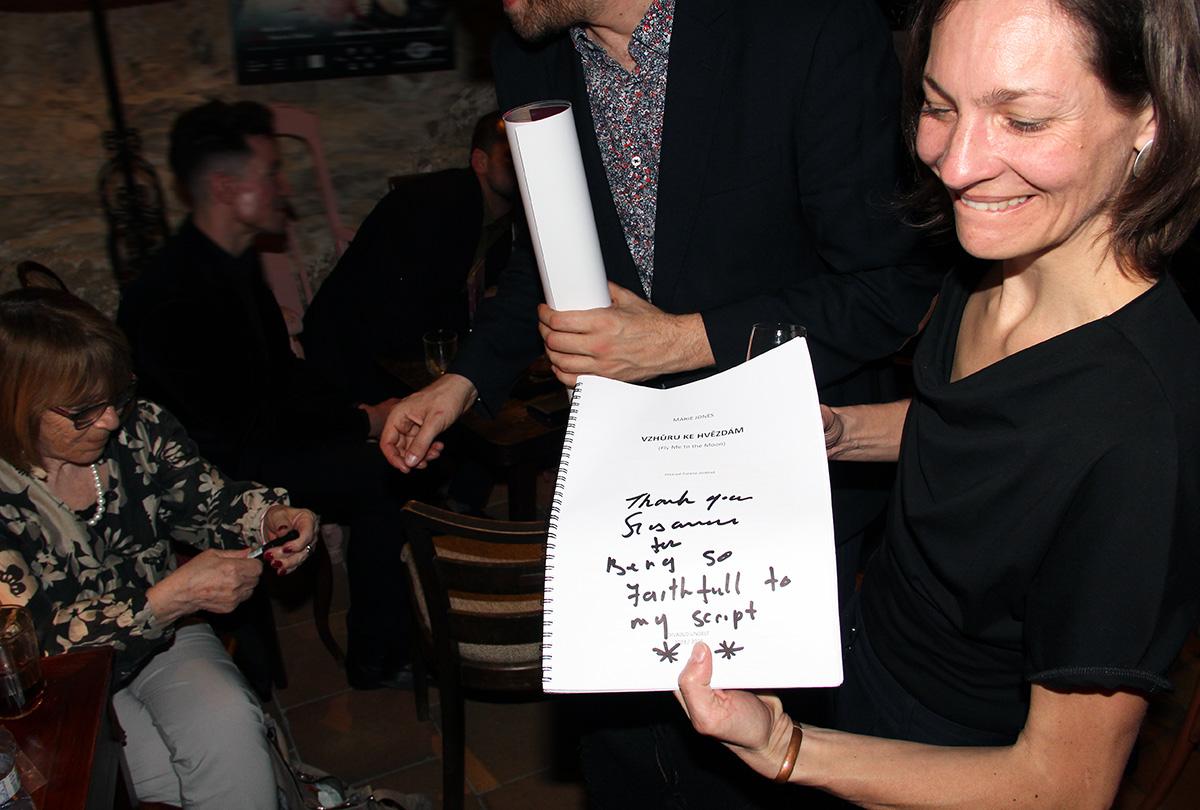 MARIE JONES
VZHŮRU KE HVĚZDÁM
(Fly Me to the Moon)
Thank you
Susannah
for
Being so
Faithfull to
my script
DIVADLO UNGELT